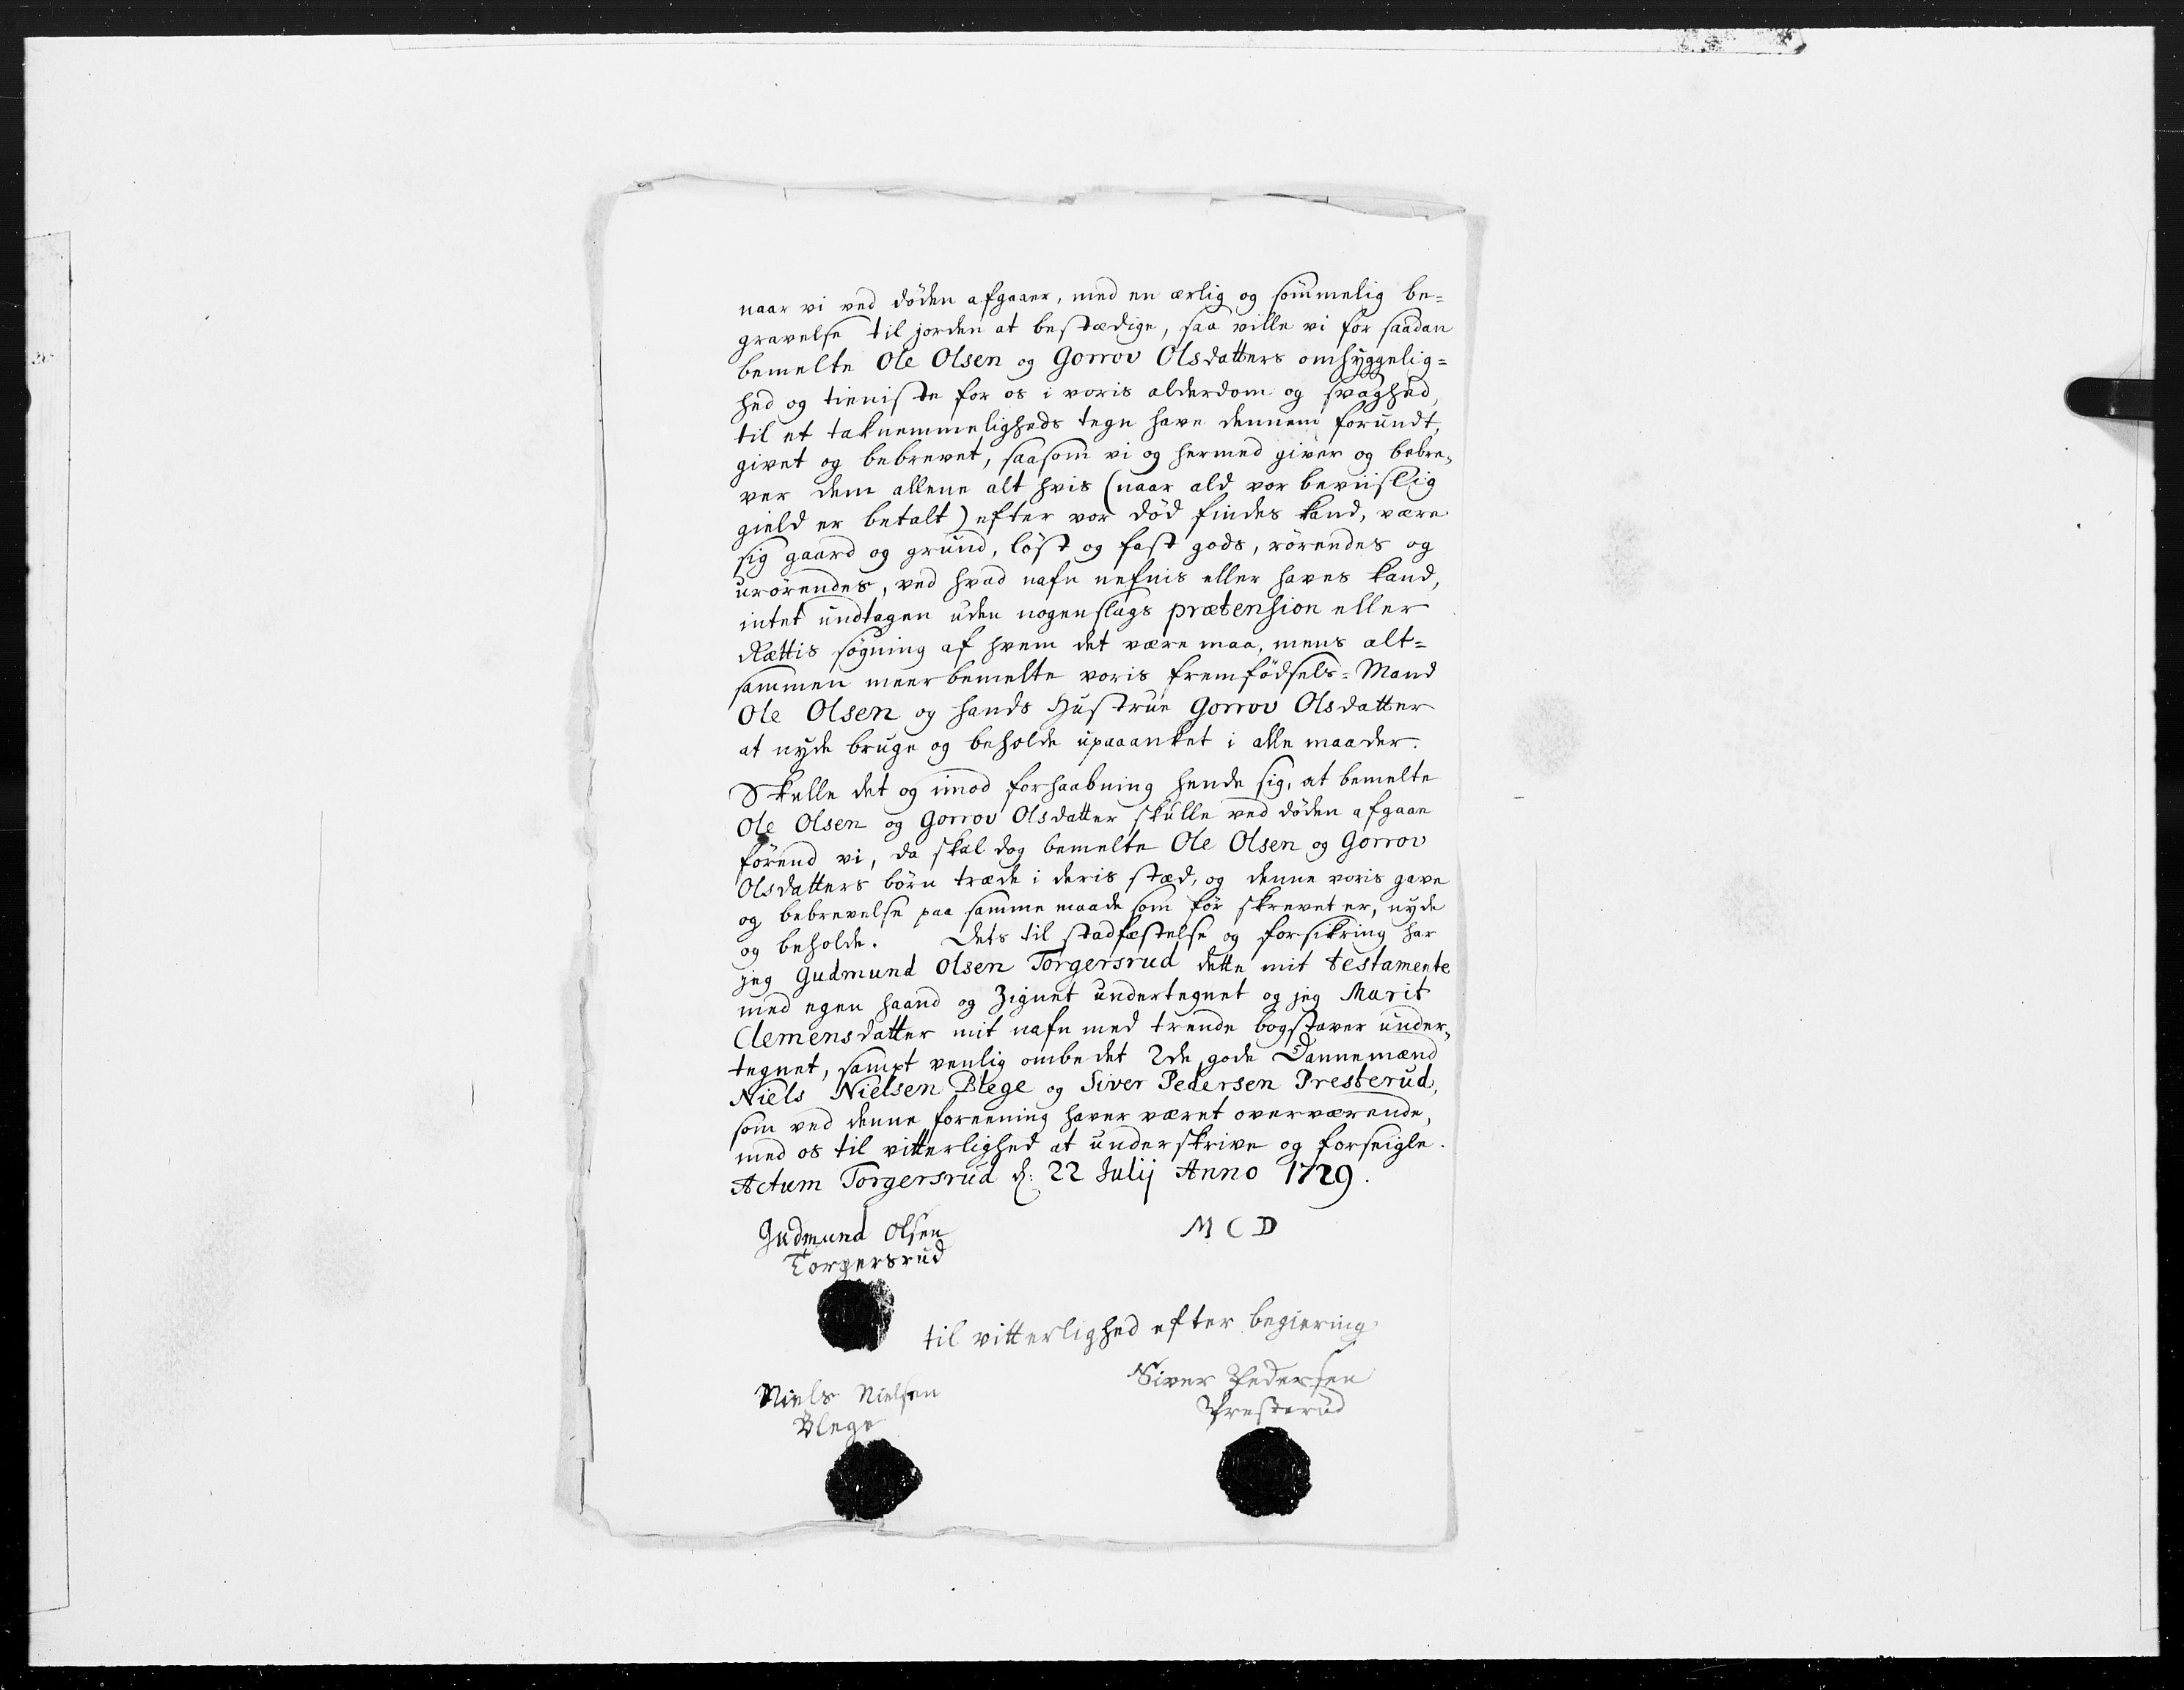 naar vi ved döden afgaaer, med en ærlig og sömmelig be=
gravelse til jorden at bestædige, saa ville vi for saadan
bemelte Ole Olsen og Gorrov Olsdatters omhyggelig=
hed og tieniste for os i voris alderdom og svaghed,
til et taknemmeligheds tegn have dennem forundt,
givet og bebrevet, saasom vi og hermed giver og bebre,,
ver dem allene alt hvis (naar ald vor beviislig
gield er betalt) efter vor död findes kand, være
sig gaard og grund, löst og fast gods, rörendes og
urörendes, ved hvad nafn nefnis eller haves kand,
intet undtagen uden nogenslags prætension eller
Rættis sögning af hvem det være maa, mens alt=
sammen meerbemelte voris fremfödsels=Mand
Ole Olsen og hands Hustrue Gorrov Olsdatter
at nyde bruge og beholde upaaanket i alle maader.
Skulle det og imod forhaabning hende sig, at bemelte
Ole Olsen og Gorrov Olsdatter skulle ved döden afgaae
förend vi, da skal dog bemelte Ole Olsen og Gorrov
Olsdatters börn træde i deris stæd, og denne voris gave
og bebrevelse paa samme maade som för skrevet er, nyde
og beholde. Dets til stadfæstelse og forsikring har
jeg Gudmund Olsen Torgersrud dette mit testamente
med egen haand og Zignet undertegnet og jeg Marit
Clemensdatter mit nafn med trende bogstaver under,,
tegnet, sampt venlig ombedet 2de gode Dannemænd
Niels Nielsen Blege og Siver Pedersen Presterud,
som ved denne foreening haver været overværende,
med os til vitterlighed at underskrive og forseigle.
Actum Torgersrud d: 22 Julij Anno 1729.
Gudmund Olsen M C D
Torgersrud
til vitterlighed efter begiering
Niels Nielsen Siver Pedersen
Blege Presterud